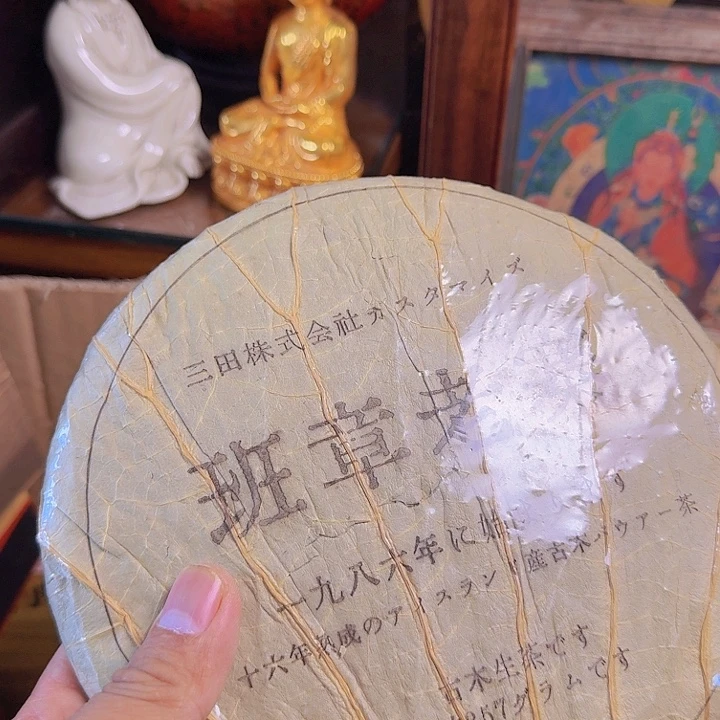 三田株式会社カスタマイズ
班章老
一九八六年に始 す
十六年熟成のアイスランド産古木パウアー茶
古木生茶です
357グラムです